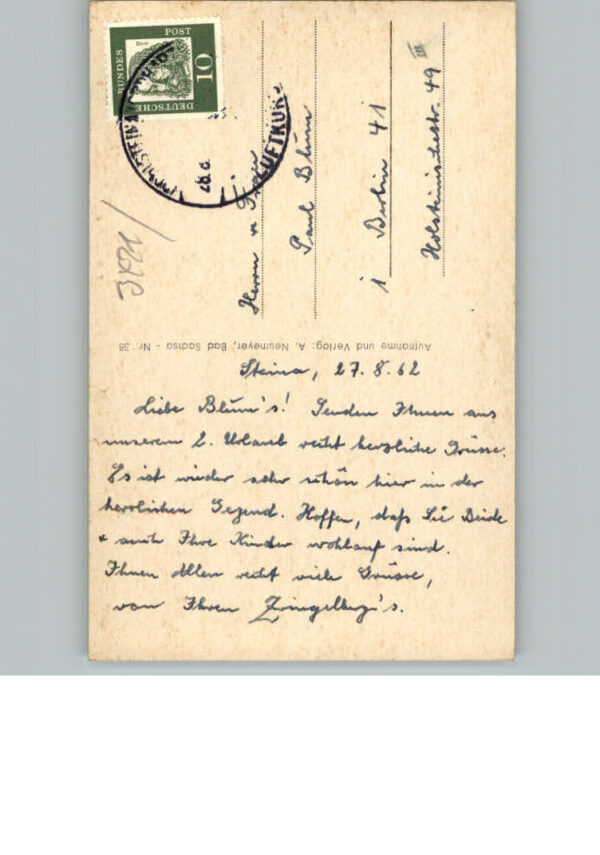 DEUTSCHE
BUNDES
POST
10
Dürer
LUFTKUR
28.8.
Herrn u. Frau
Paul Blum
1 Berlin 41
Holsteinischestr. 49 III
Aufnahme und Verlag: A. Neumeyer, Bad Sachsa - Nr. 38
Steina, 27.8.62
Liebe Blum's! Senden Ihnen aus
unserem 2. Urlaub recht herzliche Grüsse.
Es ist wieder sehr schön hier in der
herrlichen Gegend. Hoffen, daß Sie Beide
+ auch Ihre Kinder wohlauf sind.
Ihnen Allen recht viele Grüsse,
von Ihren